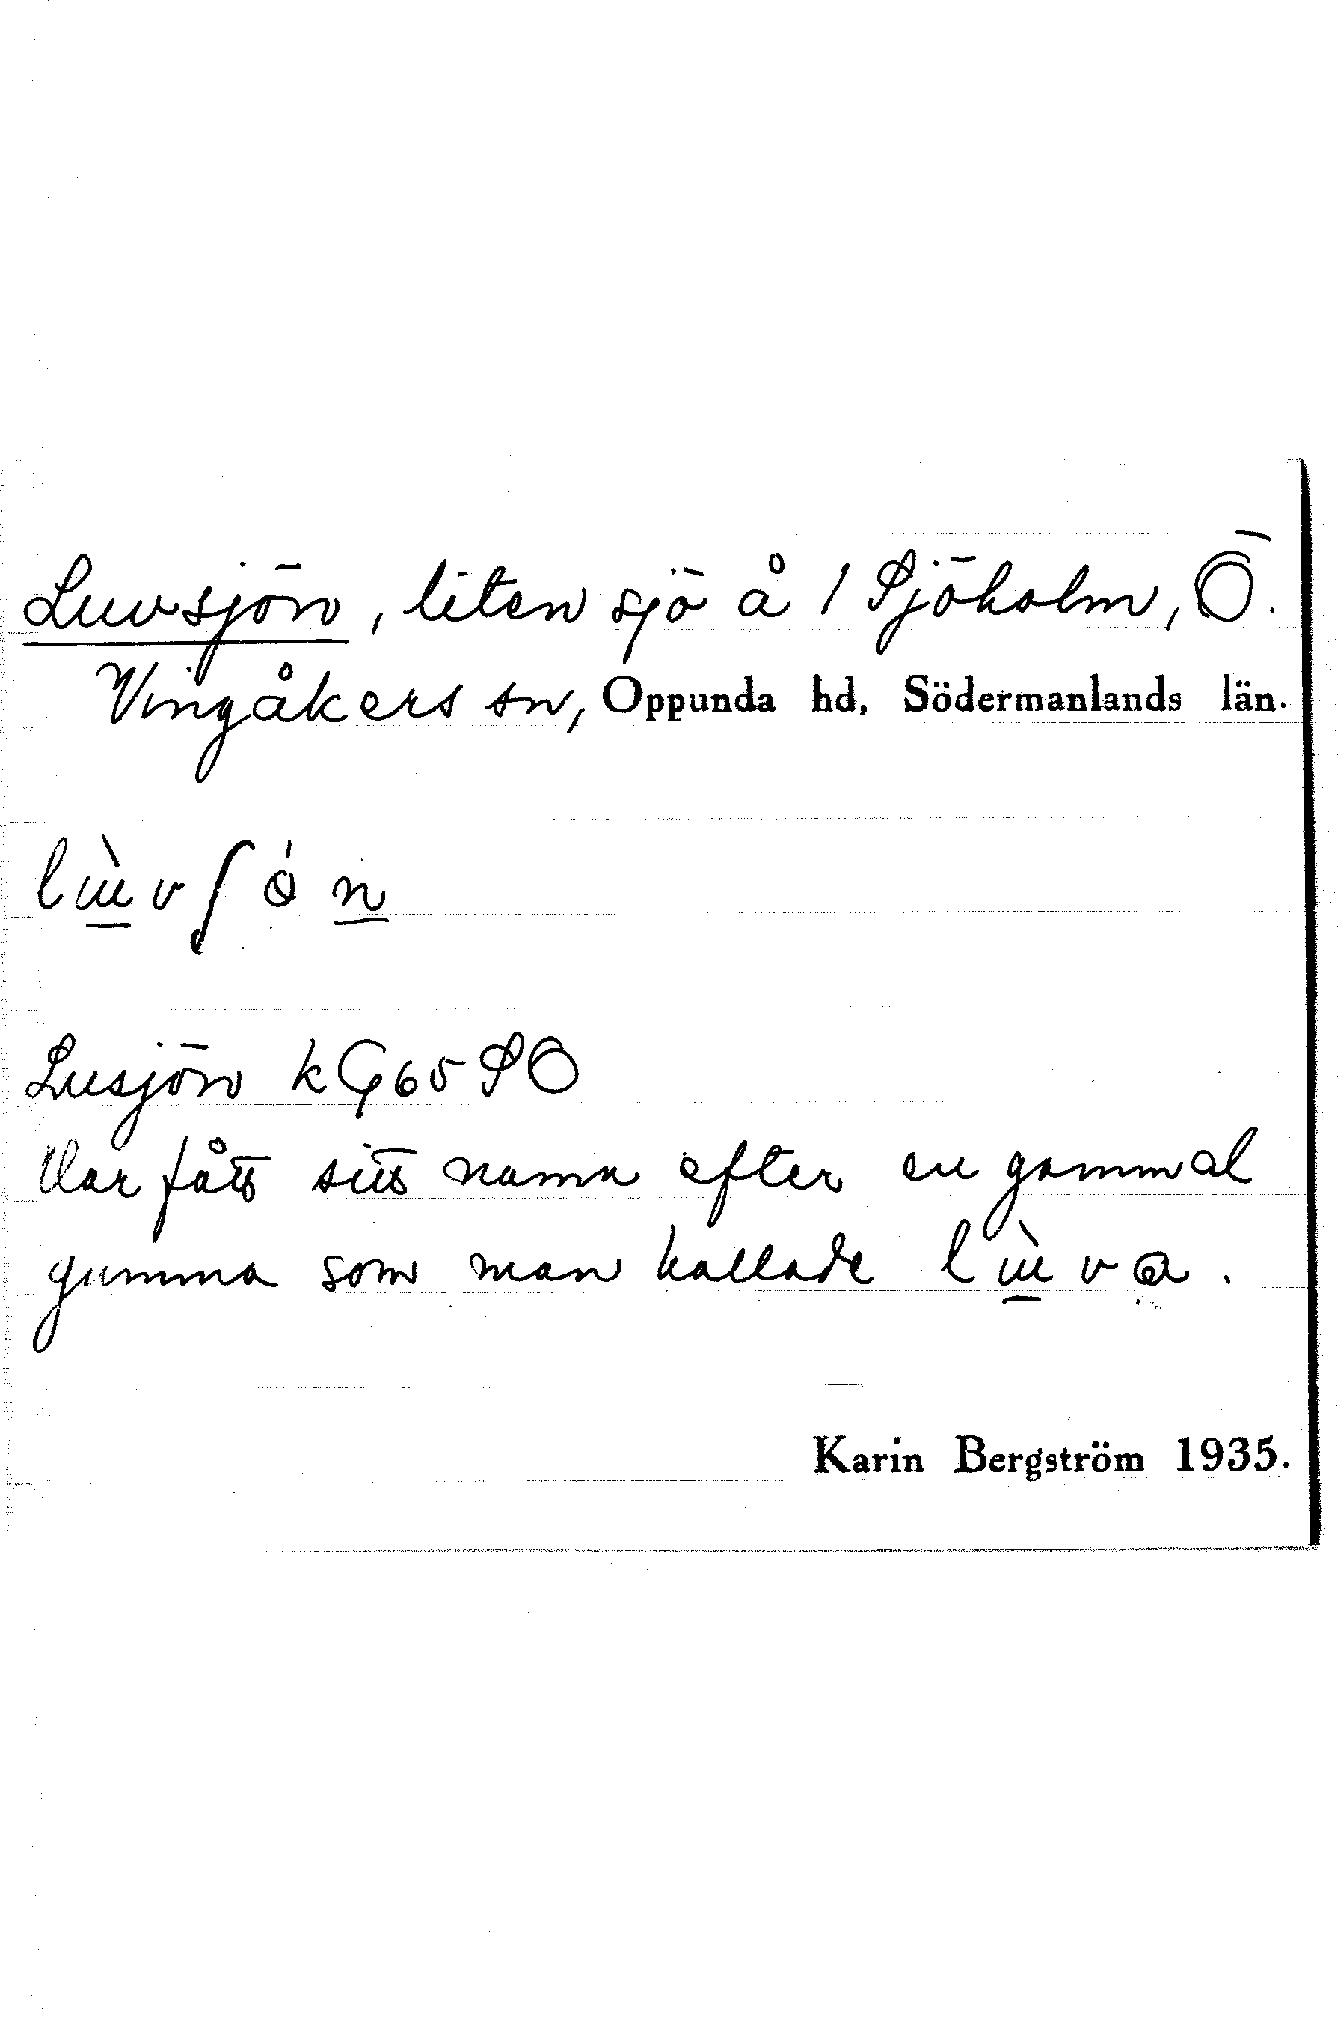 Luvsjön, liten sjö å 1 Sjöholm, Ö.
Vingåkers sn, Oppunda hd, Södermanlands län.
lùvʃön
Lusjön kG65SO
Har fått sitt namn efter en gammal
gumma som man kallade lùva.
Karin Bergström 1935.